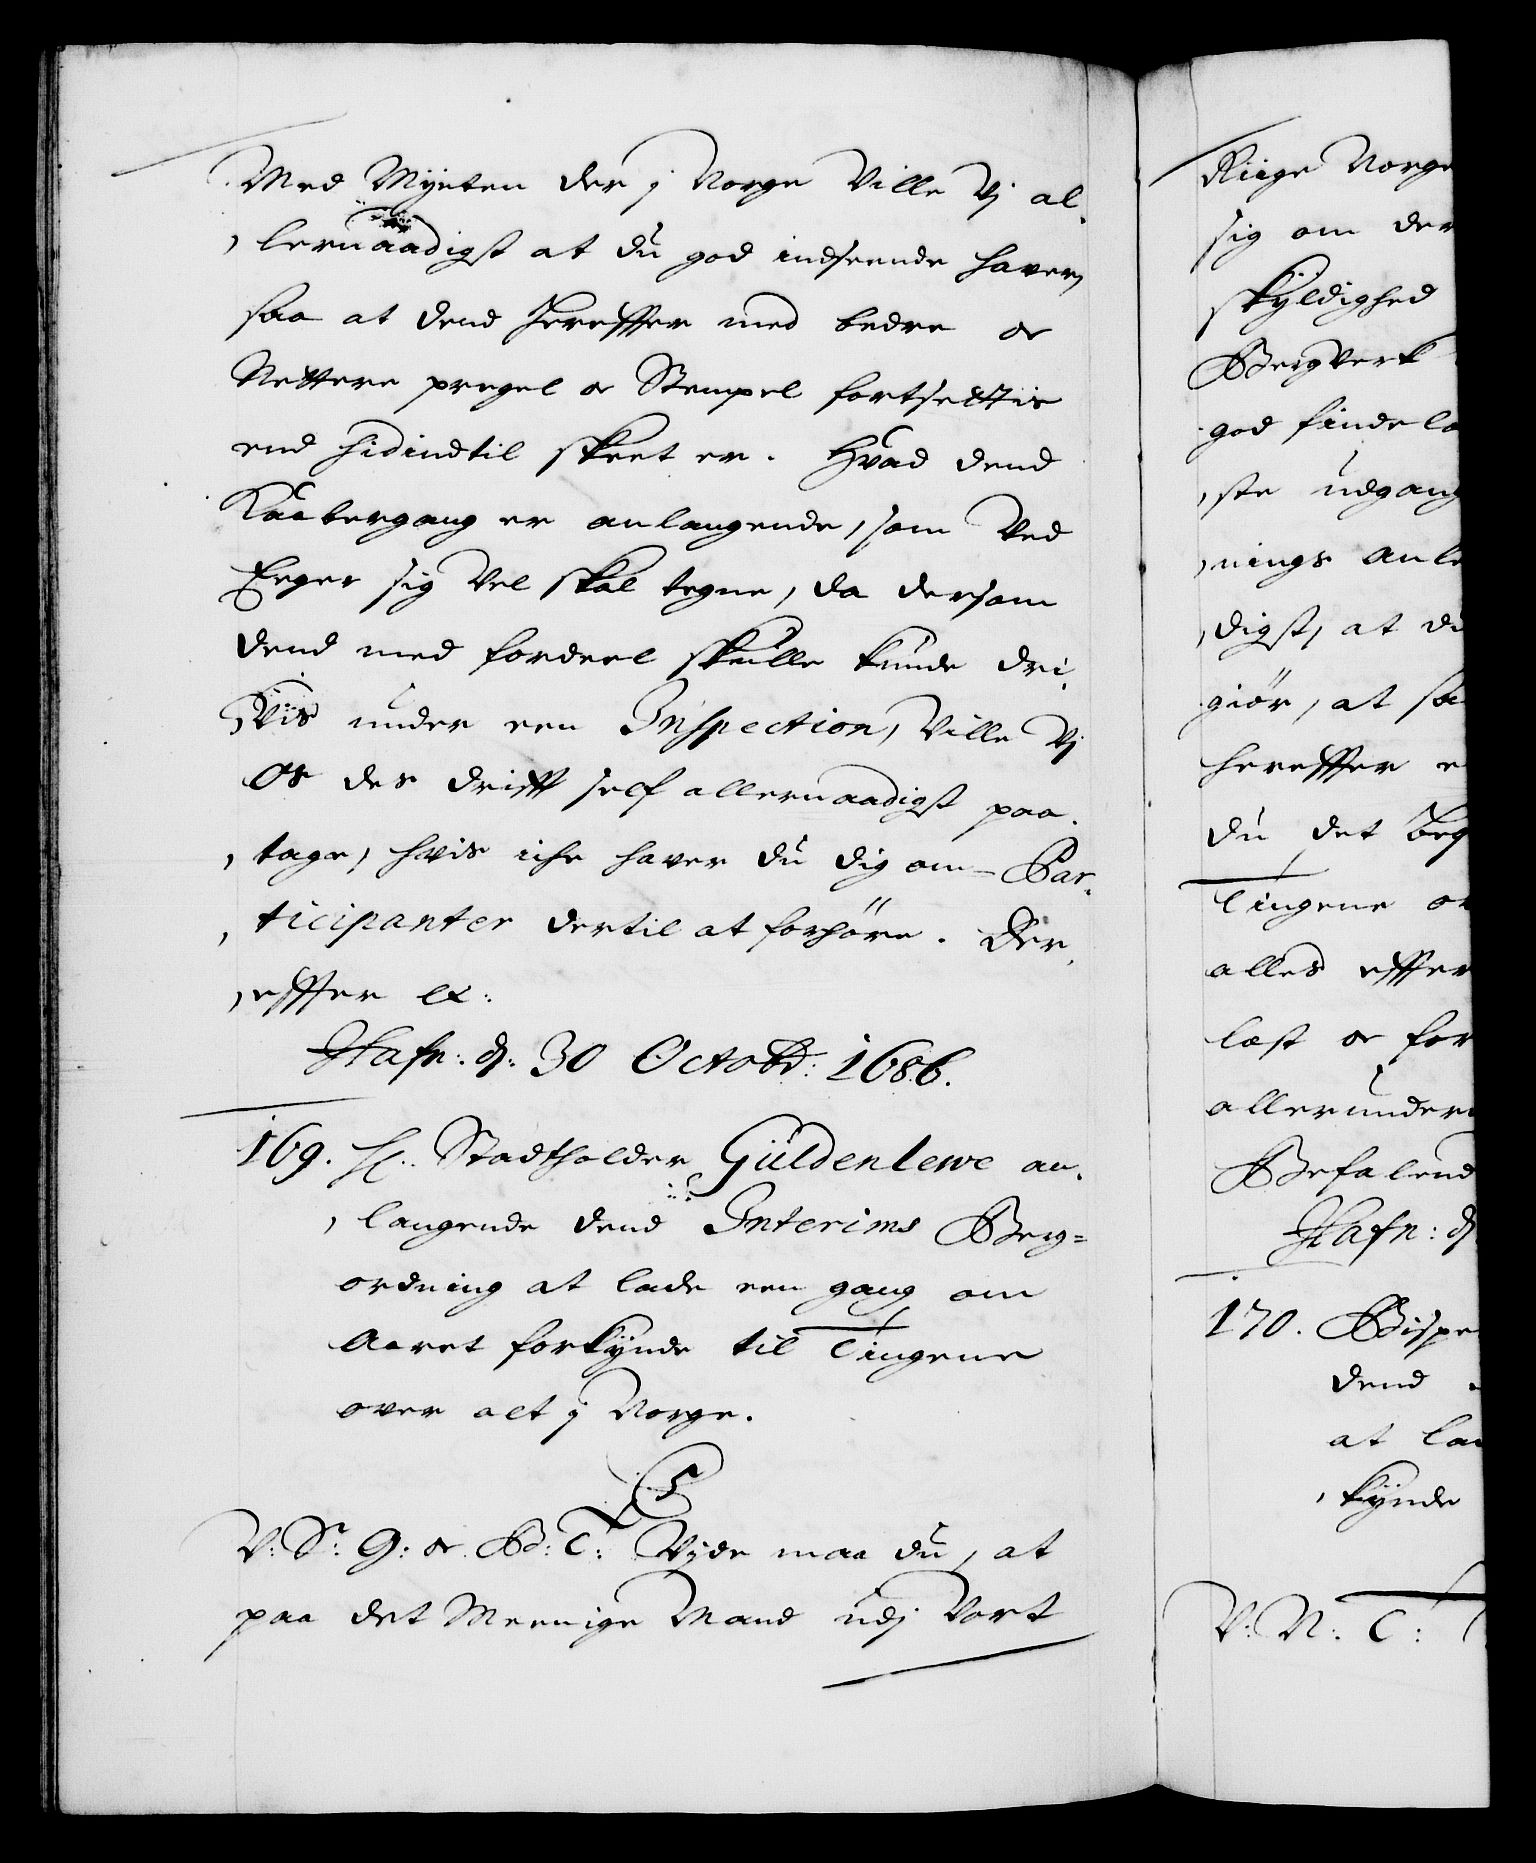 Med Mynten der j Norge Ville Vj al,
,lernaadigst at du god indseende haver,
saa at dend hereffter med bedre oc
Nettere pregel oc Stempel fortsettis
end hidindtil skeet er. Hvad dend
Kaabergang er anlangende, som Ved
Eeger sig Vel skal tegne, da dersom
dend med fordeel skulle kunde dri,
,Vis under een Inspection, Ville Vj
Os des drifft self allernaadigst paa,
,tage, hvis iche haver du dig om Par,
,ticipanter dertil at forhöre. Der,
,effter etc:
Hafn: d: 30 Octobr: 1686.
169. H. Stadtholder Güldenlewe an,
,langende dend Interims Berg=
ordning at lade een gang om
Aaret forkynde til Tingene
over alt j Norge.
C5
V: Sr: G: oc B: T: Vide maa du, at
paa det Meenige Mand udj Vort
Riige Norge
sig om der
skyldighed
Bergverk
god finde la
,ste udgang
,nings anle
,digst, at du
giör, at sa
hereffter e
du det beg
Tingene o
alles effter
læst oc for
allerunder
Befalend
Hafn: d
170. Bispe
dend
at la
,kynde
V: N: T: